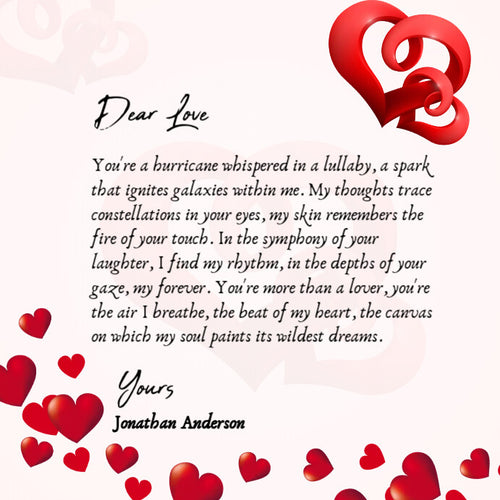 Dear Love
You're a hurricane whispered in a lullaby, a spark
that ignites galaxies within me. My thoughts trace
constellations in your eyes, my skin remembers the
fire of your touch. In the symphony of your
laughter, I find my rhythm, in the depths of your
gaze, my forever. You're more than a lover, you're
the air I breathe, the beat of my heart, the canvas
on which my soul paints its wildest dreams.
Yours
Jonathan Anderson